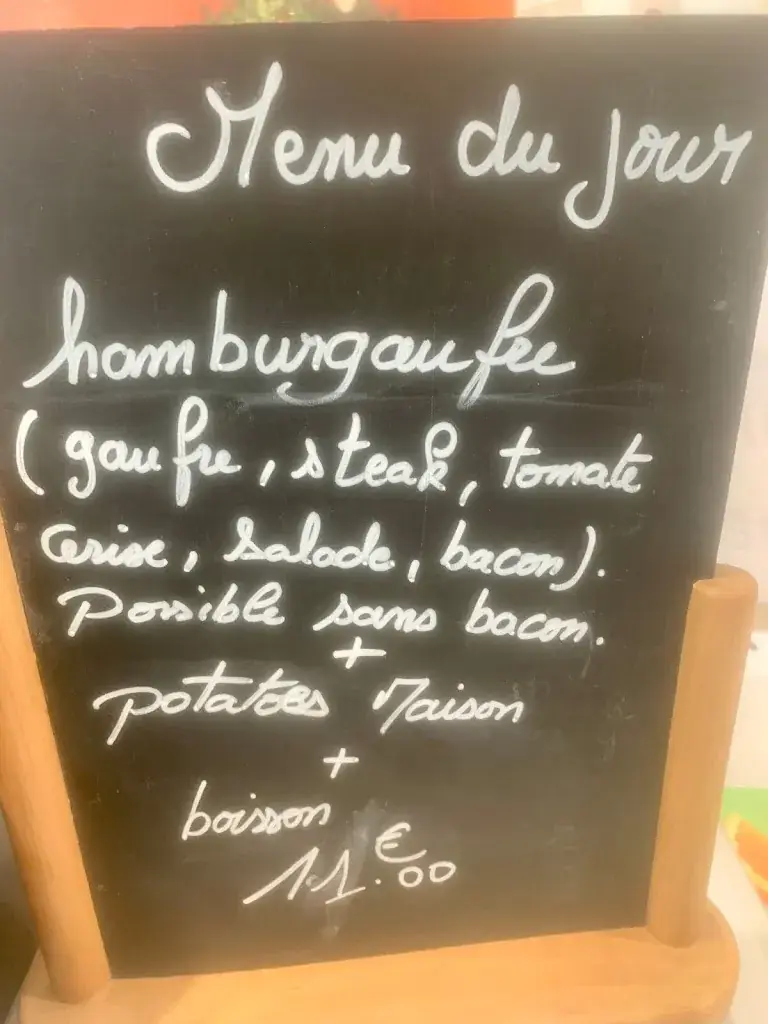 Menu du jour
hamburgaufre
(gaufre, steak, tomate
cerise, salade, bacon).
Possible sans bacon.
+
potatoes Maison
+
boisson
11.€00